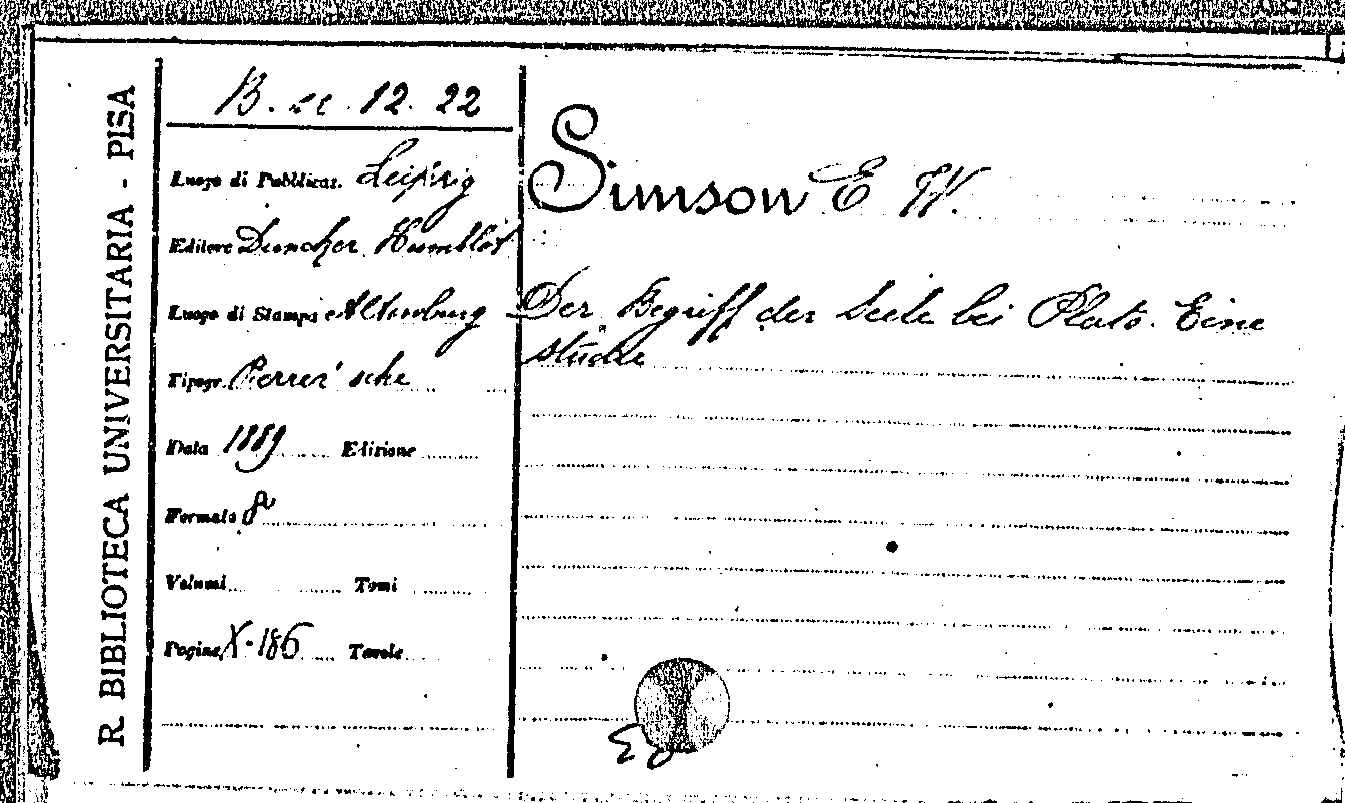 R. BIBLIOTECA UNIVERSITARIA - PISA
B. cc. 12. 22
Luogo di Pubblicaz. Leipzig
Editore Duncker Humblot
Luogo di Stampa Altenburg
Tipogr. Pierer'sche
Data 1889 Edizione
Formato 8º
Volumi Tomi
Pagine X-186 Tavole
Simson E W.
Der Begriff der Seele bei Plato. Eine
studie